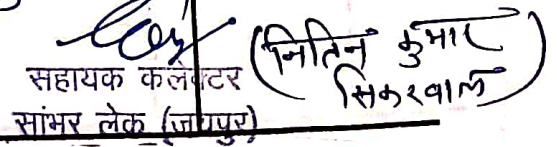 (नितिन कुमार
सिकरवाल)
सहायक कलेक्टर
सांभर लेक (जयपुर)